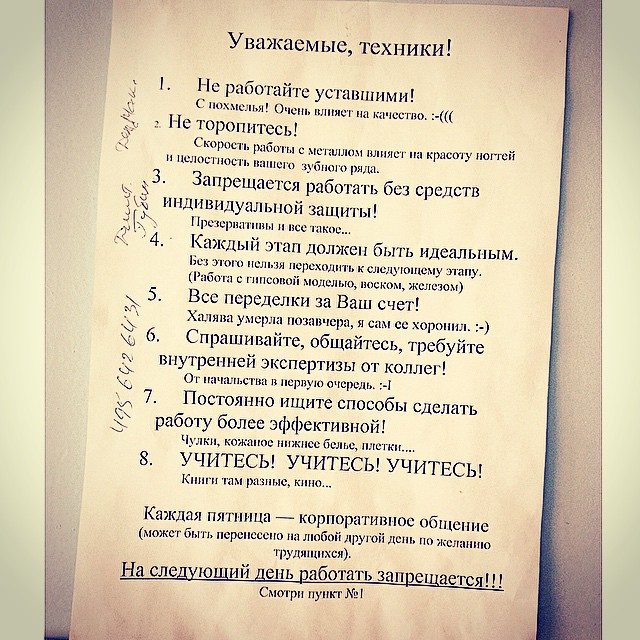 Уважаемые, техники!
1. Не работайте уставшими!
С похмелья! Очень влияет на качество. :-(((
2. Не торопитесь!
Скорость работы с металлом влияет на красоту ногтей
и целостность вашего зубного ряда.
3. Запрещается работать без средств
индивидуальной защиты!
Презервативы и все такое...
4. Каждый этап должен быть идеальным.
Без этого нельзя переходить к следующему этапу.
(Работа с гипсовой моделью, воском, железом)
5. Все переделки за Ваш счет!
Халява умерла позавчера, я сам ее хоронил. :-)
6. Спрашивайте, общайтесь, требуйте
внутренней экспертизы от коллег!
От начальства в первую очередь. :-I
7. Постоянно ищите способы сделать
работу более эффективной!
Чулки, кожаное нижнее белье, плетки....
8. УЧИТЕСЬ! УЧИТЕСЬ! УЧИТЕСЬ!
Книги там разные, кино...
Каждая пятница — корпоративное общение
(может быть перенесено на любой другой день по желанию
трудящихся).
На следующий день работать запрещается!!!
Смотри пункт №1
495 642 6431